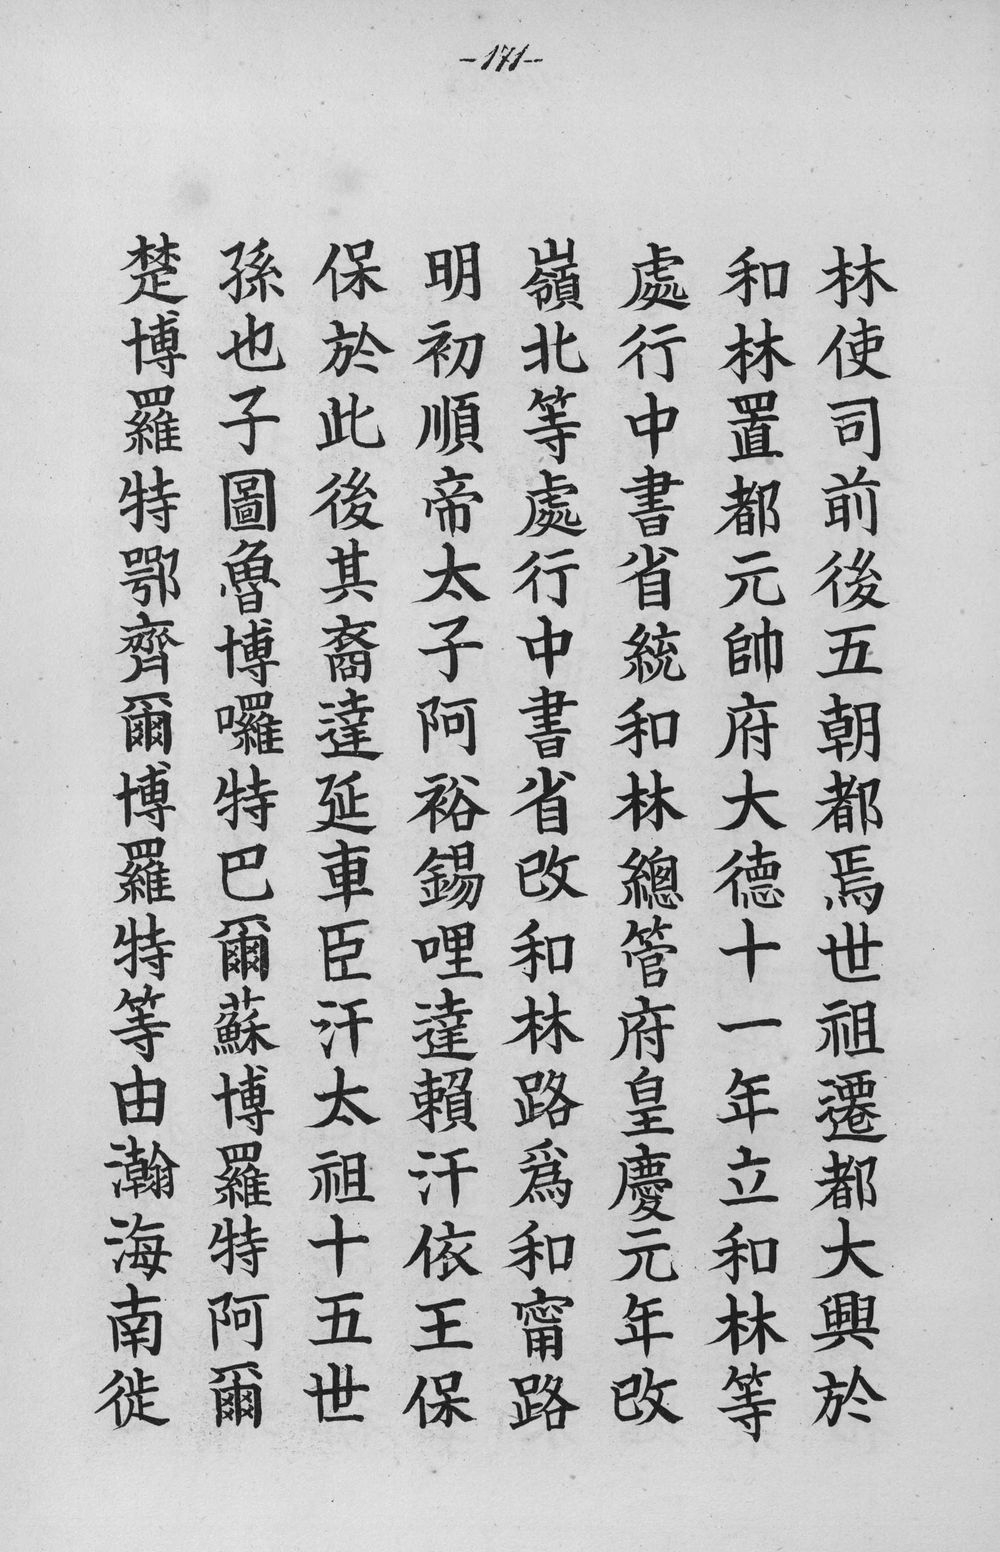 -171-
林使司前後五朝都焉世祖遷都大興於
和林置都元帥府大德十一年立和林等
處行中書省統和林總管府皇慶元年改
嶺北等處行中書省改和林路爲和甯路
明初順帝太子阿裕錫哩達賴汗依王保
保於此後其裔達延車臣汗太祖十五世
孫也子圖魯博囉特巴爾蘇博羅特阿爾
楚博羅特鄂齊爾博羅特等由瀚海南徙